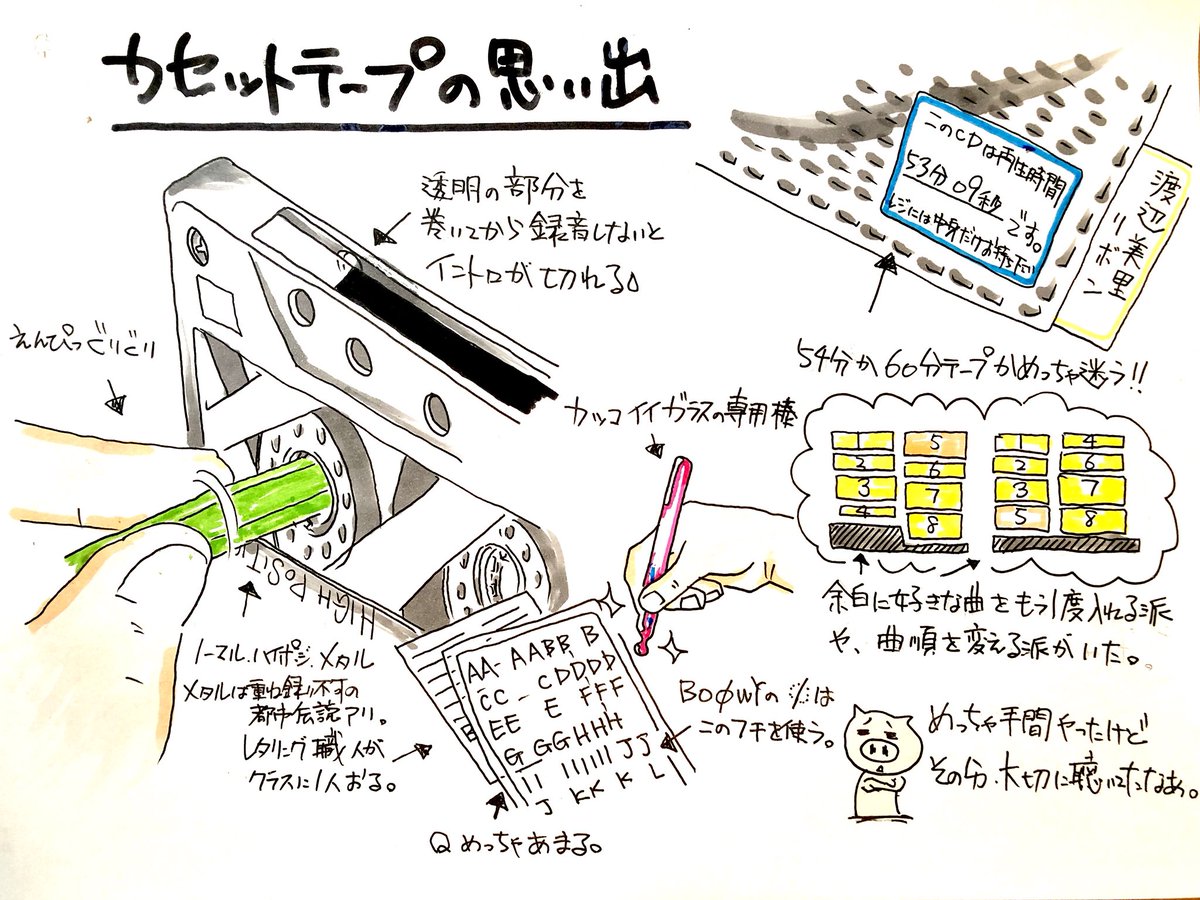 カセットテープの思い出
透明の部分を
巻いてから録音しないと
イントロが切れる。
このCDは再生時間
53分09秒です。
レジには中身だけお持ち下さい
渡辺美里
リボン
54分か60分テープかめっちゃ迷う!!
えんぴつぐりぐり
カッコイイガラスの専用棒
1 5
2 6
3 7
4 8
1 4
2 6
3 7
5 8
余白に好きな曲をもう1度入れる派
や、曲順を変える派がいた。
HIGH POSIT
ノーマル.ハイポジ.メタル
メタルは重ね録り不可の
都市伝説アリ。
レタリング職人が
クラスに1人おる。
AA-AABB B
CC - CDDDD
EE E FFF
G GGHHH
II IIIIII JJ
J KK K L
BOØWYの
は
このフチを使う。
Qめっちゃあまる。
めっちゃ手間やったけど
その分、大切に聴いてたなあ。